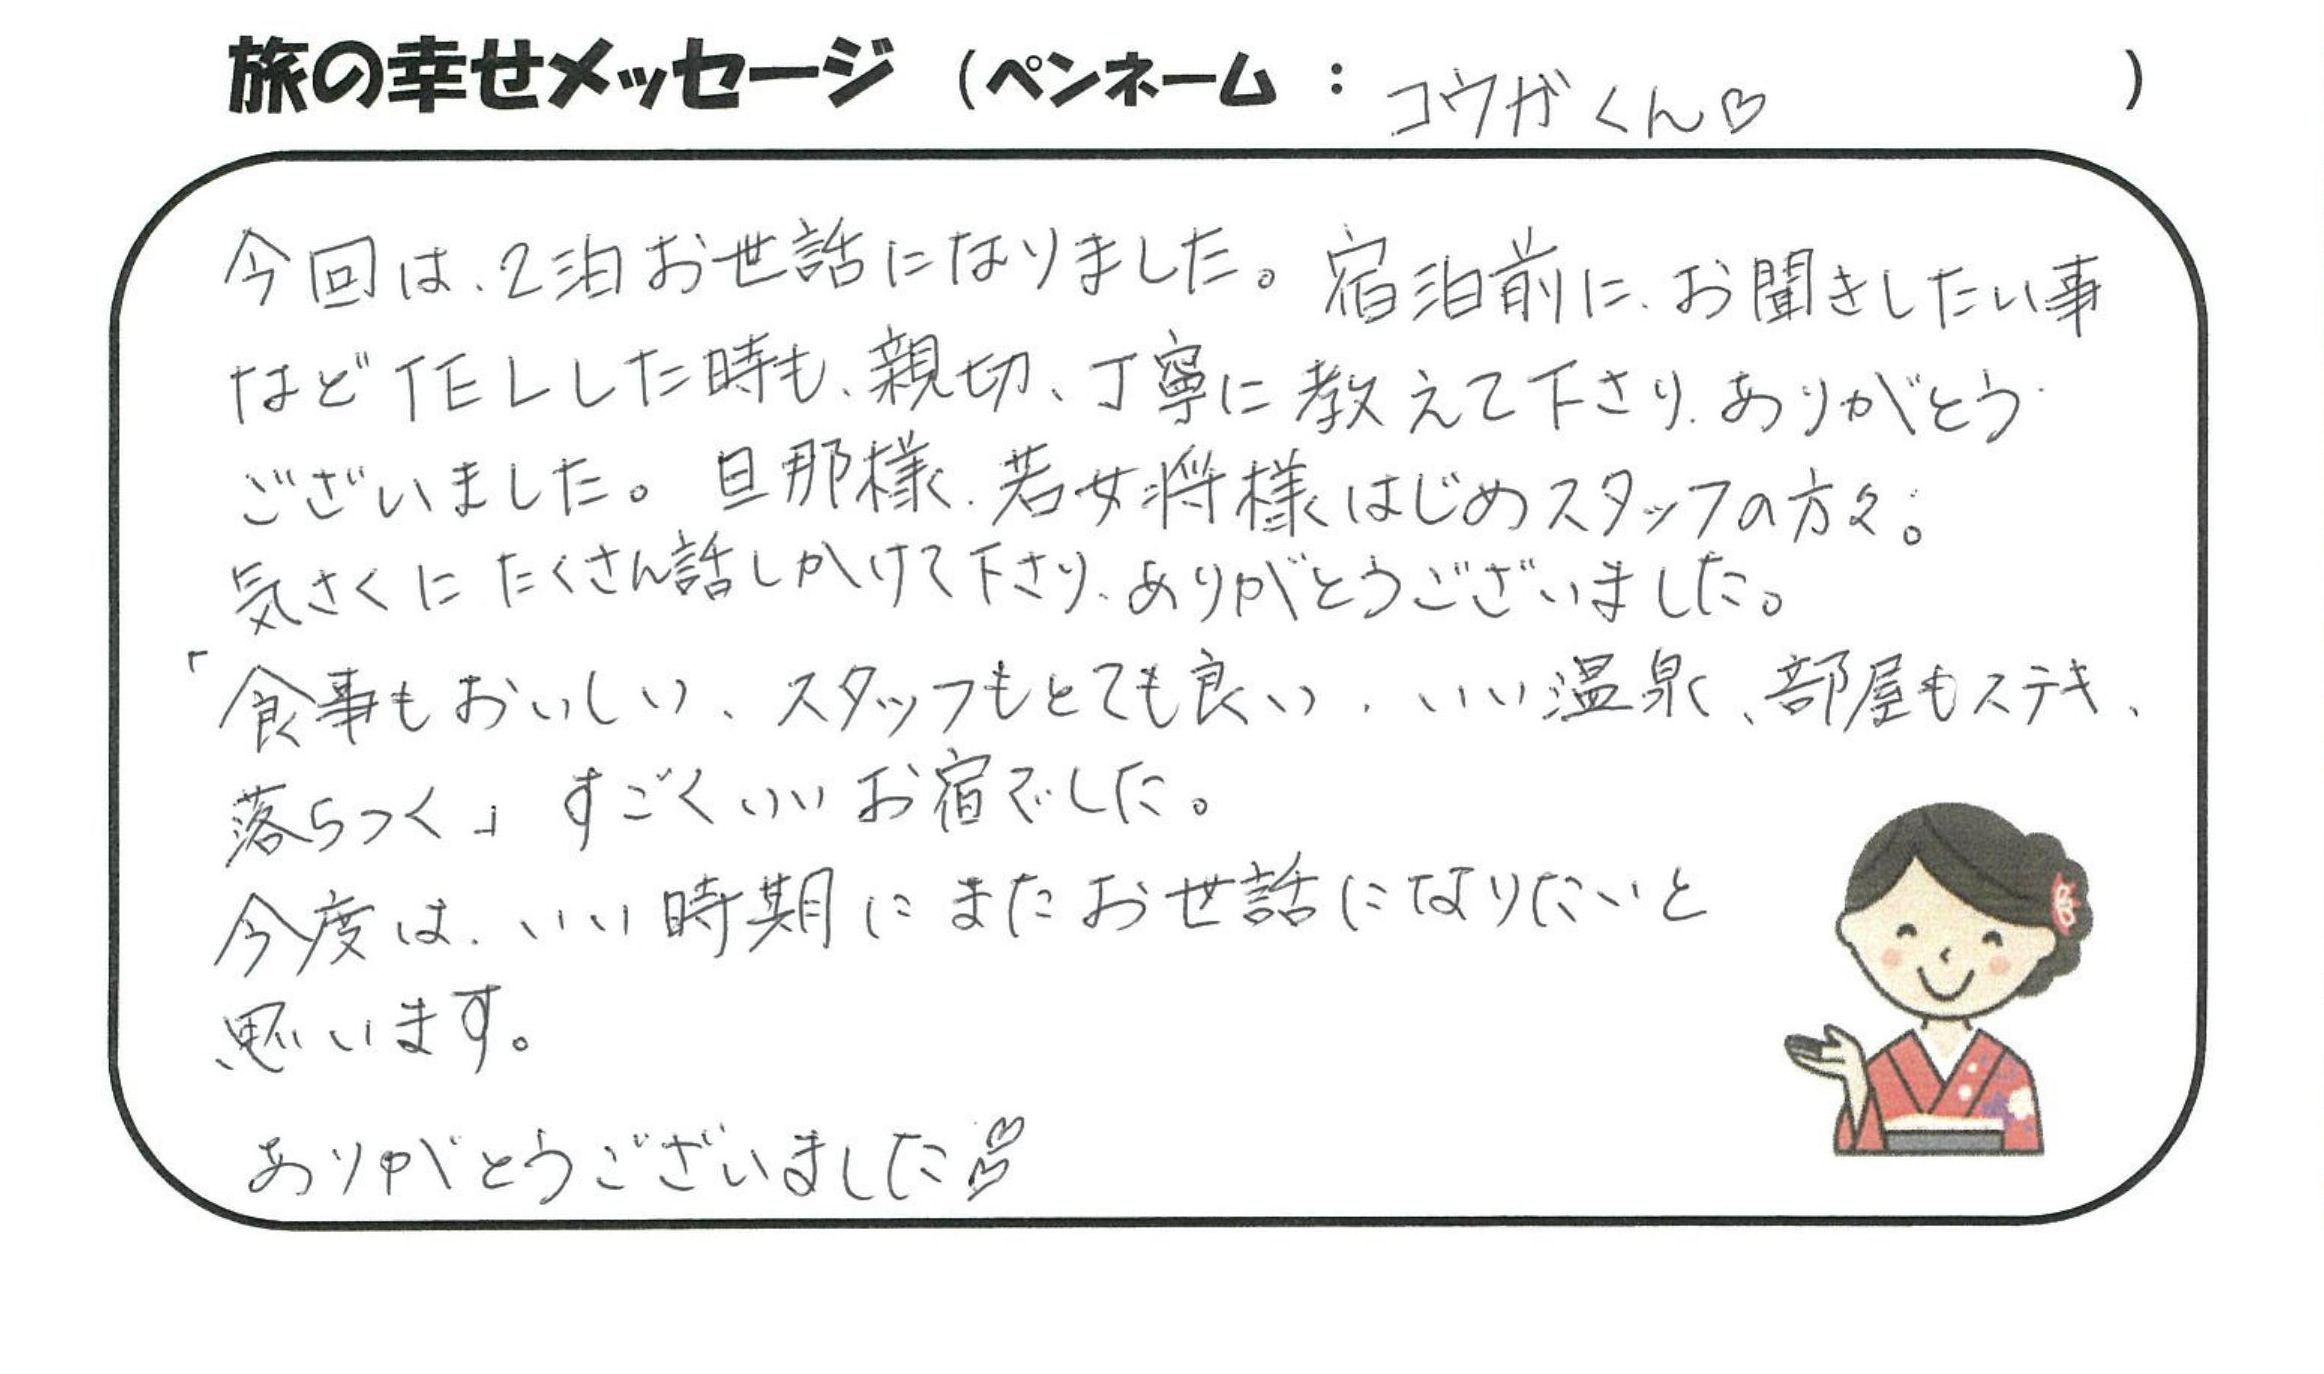 旅の幸せメッセージ (ペンネーム : コウガくん♡ )
今回は、2泊お世話になりました。宿泊前に、お聞きしたい事
などTELした時も、親切、丁寧に教えて下さり、ありがとう
ございました。旦那様、若女将様はじめスタッフの方々。
気さくにたくさん話しかけて下さり、ありがとうございました。
「食事もおいしい、スタッフもとても良い、いい温泉、部屋もステキ、
落らつく」すごくいいお宿でした。
今度は、いい時期にまたお世話になりたいと
思います。
ありがとうございました